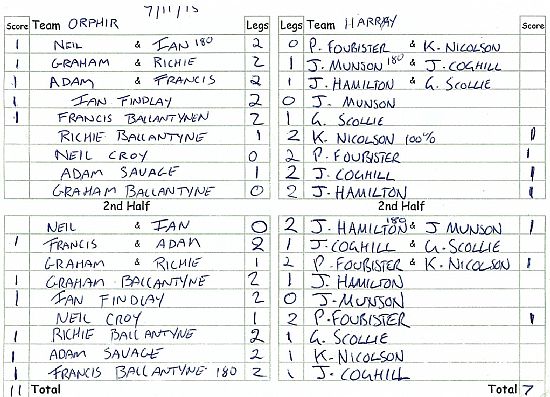 7/11/15
Score Team ORPHIR Legs Team HARRAY Score
1 NEIL & IAN 180 2 0 P. FOUBISTER & K. NICOLSON
1 GRAHAM & RICHIE 2 1 J. MUNSON 180 & J. COGHILL
1 ADAM & FRANCIS 2 1 J. HAMILTON & G. SCOLLIE
1 IAN FINDLAY 2 0 J. MUNSON
1 FRANCIS BALLANTYNEN 2 1 G. SCOLLIE
RICHIE BALLANTYNE 1 2 K. NICOLSON 100% 1
NEIL CROY 0 2 P. FOUBISTER 1
ADAM SAVAGE 1 2 J. COGHILL 1
GRAHAM BALLANTYNE 0 2 J. HAMILTON 1
2nd Half 2nd Half
NEIL & IAN 0 2 J. HAMILTON 180 & J MUNSON 1
1 FRANCIS & ADAM 2 1 J. COGHILL & G. SCOLLIE
GRAHAM & RICHIE 1 2 P. FOUBISTER & K. NICOLSON 1
1 GRAHAM BALLANTYNE 2 1 J. HAMILTON
1 IAN FINDLAY 2 0 J. MUNSON
NEIL CROY 1 2 P. FOUBISTER 1
1 RICHIE BALLANTYNE 2 1 G. SCOLLIE
1 ADAM SAVAGE 2 1 K. NICOLSON
1 FRANCIS BALLANTYNE 180 2 1 J. COGHILL
11 Total Total 7